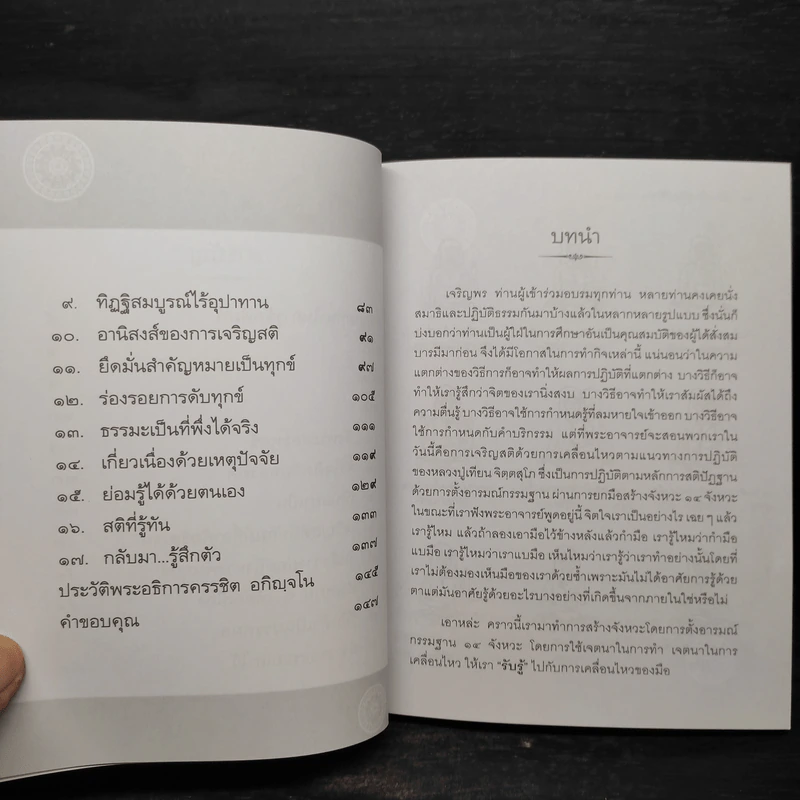 ๙. ทิฏฐิสมบูรณ์ไร้อุปาทาน ๘๓
๑๐. อานิสงส์ของการเจริญสติ ๙๑
๑๑. ยึดมั่นสำคัญหมายเป็นทุกข์ ๙๗
๑๒. ร่องรอยการดับทุกข์ ๑๐๕
๑๓. ธรรมะเป็นที่พึ่งได้จริง ๑๑๑
๑๔. เกี่ยวเนื่องด้วยเหตุปัจจัย ๑๑๙
๑๕. ย่อมรู้ได้ด้วยตนเอง ๑๒๙
๑๖. สติที่รู้ทัน ๑๓๓
๑๗. กลับมา...รู้สึกตัว ๑๓๗
ประวัติพระอธิการครรชิต อกิญฺจโน ๑๔๕
คำขอบคุณ ๑๔๗
บทนำ
เจริญพร ท่านผู้เข้าร่วมอบรมทุกท่าน หลายท่านคงเคยนั่ง
สมาธิและปฏิบัติธรรมกันมาบ้างแล้วในหลากหลายรูปแบบ ซึ่งนั่นก็
บ่งบอกว่าท่านเป็นผู้ใฝ่ในการศึกษาอันเป็นคุณสมบัติของผู้ได้สั่งสม
บารมีมาก่อน จึงได้มีโอกาสในการทำกิจเหล่านี้ แน่นอนว่าในความ
แตกต่างของวิธีการก็อาจทำให้ผลการปฏิบัติที่แตกต่าง บางวิธีก็อาจ
ทำให้เรารู้สึกว่าจิตของเรานิ่งสงบ บางวิธีอาจทำให้เราสัมผัสได้ถึง
ความตื่นรู้ บางวิธีอาจใช้การกำหนดรู้ที่ลมหายใจเข้าออก บางวิธีอาจ
ใช้การกำหนดกับคำบริกรรม แต่ที่พระอาจารย์จะสอนพวกเราใน
วันนี้คือการเจริญสติด้วยการเคลื่อนไหวตามแนวทางการปฏิบัติ
ของหลวงปู่เทียน จิตฺตสุโภ ซึ่งเป็นการปฏิบัติตามหลักการสติปัฏฐาน
ด้วยการตั้งอารมณ์กรรมฐาน ผ่านการยกมือสร้างจังหวะ ๑๔ จังหวะ
ในขณะที่เราฟังพระอาจารย์พูดอยู่นี้ จิตใจเราเป็นอย่างไร เฉย ๆ แล้ว
เรารู้ไหม แล้วถ้าลองเอามือไว้ข้างหลังแล้วกำมือ เรารู้ไหมว่ากำมือ
แบมือ เรารู้ไหมว่าเราแบมือ เห็นไหมว่าเรารู้ว่าเราทำอย่างนั้นโดยที่
เราไม่ต้องมองเห็นมือของเราด้วยซ้ำเพราะมันไม่ได้อาศัยการรู้ด้วย
ตาแต่มันอาศัยรู้ด้วยอะไรบางอย่างที่เกิดขึ้นจากภายในใช่หรือไม่
เอาหล่ะ คราวนี้เรามาทำการสร้างจังหวะโดยการตั้งอารมณ์
กรรมฐาน ๑๔ จังหวะ โดยการใช้เจตนาในการทำ เจตนาในการ
เคลื่อนไหว ให้เรา “รับรู้” ไปกับการเคลื่อนไหวของมือ